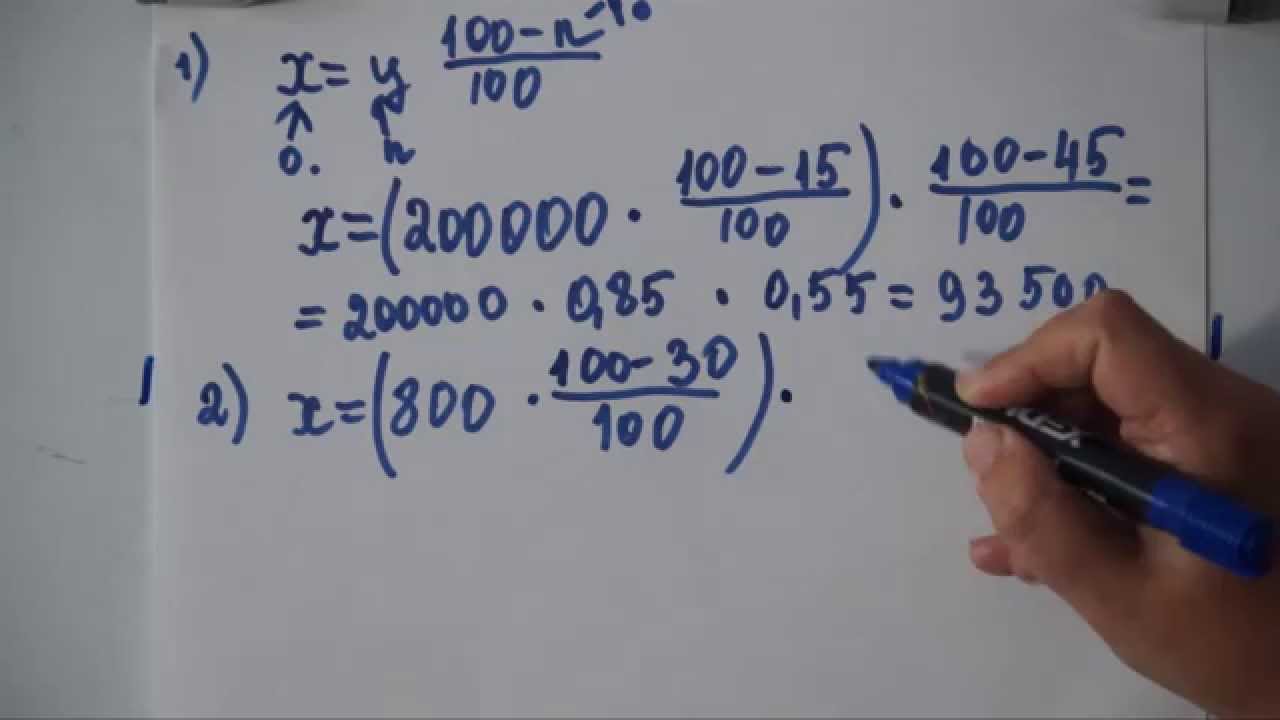 1) x = y (100 - n)/100
o. n
x = (200000 · (100 - 15)/100) · (100 - 45)/100 =
= 200000 · 0,85 · 0,55 = 93 500
2) x = (800 · (100 - 30)/100) ·